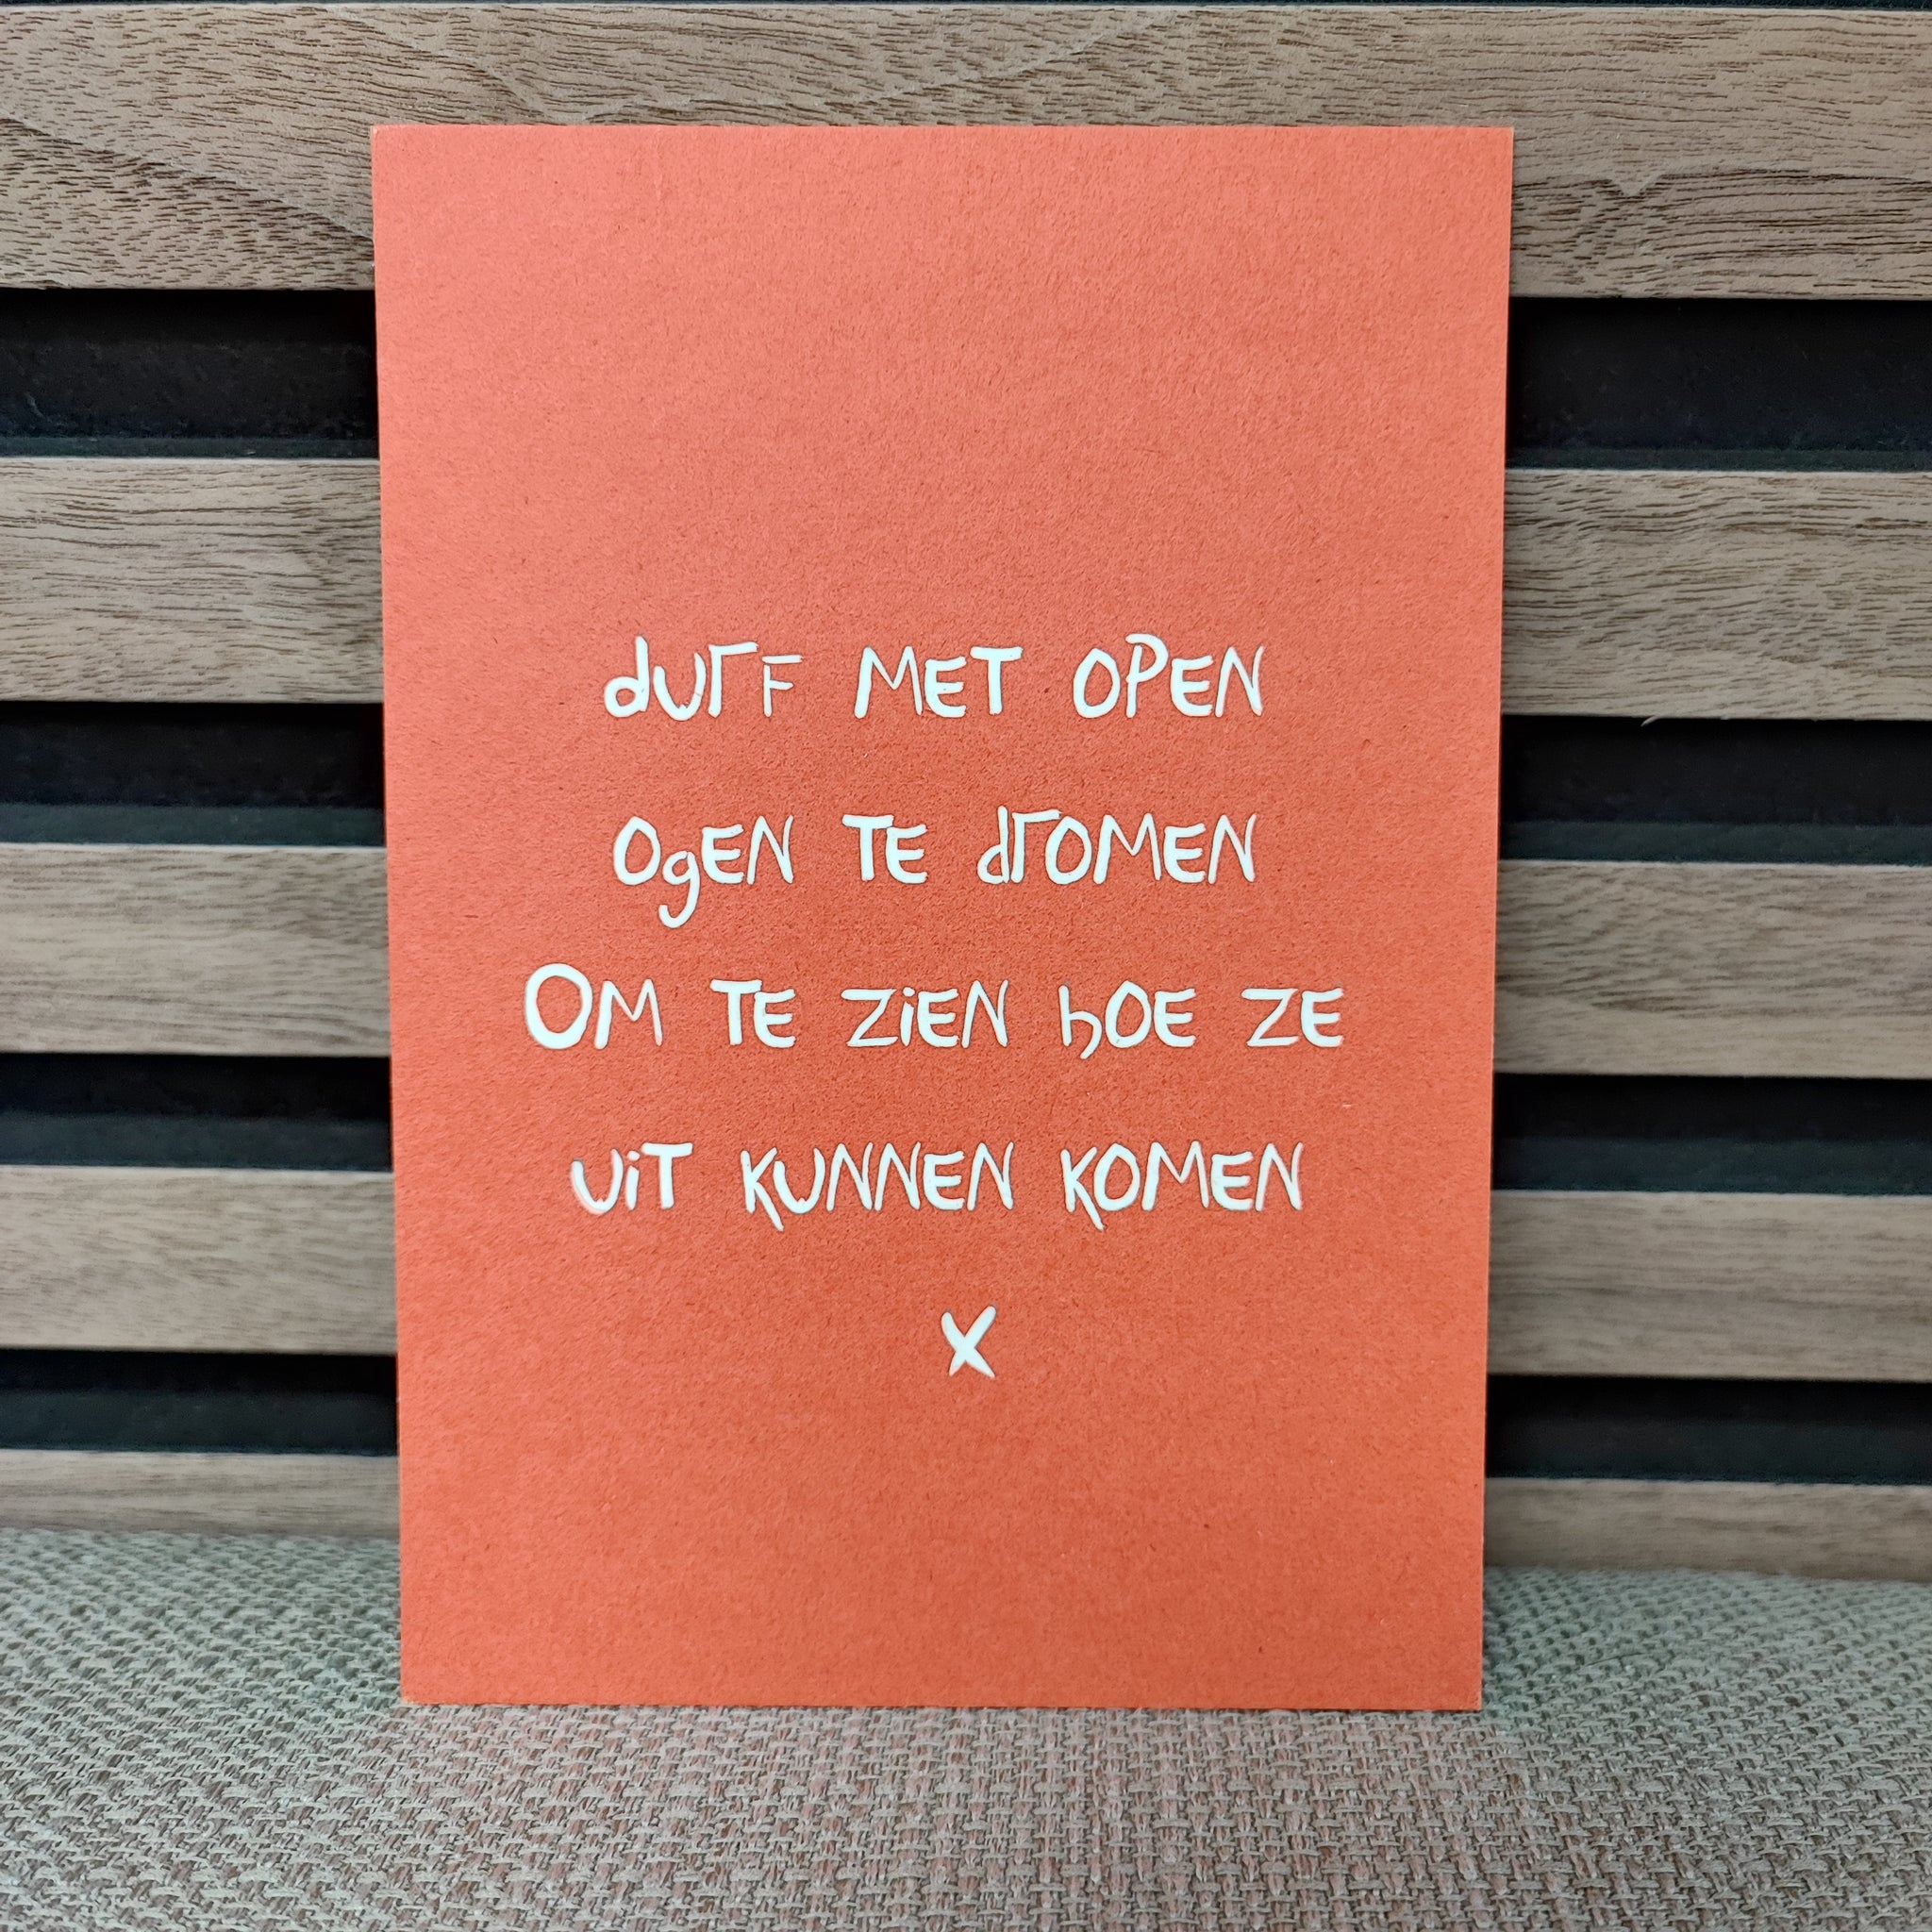 durf met open
ogen te dromen
Om te zien hoe ze
uit kunnen komen
x